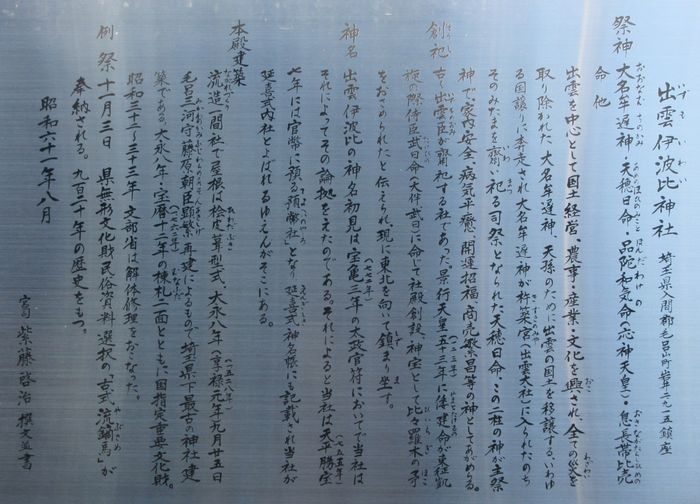 出雲伊波比神社 埼玉県入間郡毛呂山町岩井二九一五鎮座
祭神 大名牟遅神・天穂日命・品陀和気命(応神天皇)・息長帯比売
命 他
出雲を中心として国土経営、農事・産業・文化を興され、全ての災を
取り除かれた大名牟遅神、天孫のために出雲の国土を移譲する、いわゆ
る国譲りに奔走され大名牟遅神が杵築宮(出雲大社)に入られたのち
そのみたまを齋い祀る司祭となられた天穂日命、この二柱の神が主祭
神で家内安全、病気平癒、開運招福、商売繁昌等の神としてあがめる。
創祀 古く出雲臣が齋祀する社であった。景行天皇五十三年に倭建命が東征凱
旋の際侍臣武日命(大伴武日)に命じて社殿創設、神宝として比々羅木の矛
をおさめられたと伝えられ、現に東北を向いて鎮まり坐す。
神名 出雲伊波比の神名初見は宝亀三年の太政官符においてで当社は
それによってその論拠をえたのである。それによると当社は天平勝宝
七年には官幣に預る預幣社」となり延喜式神名帳にも記載され当社が
延喜式内社とよばれるゆえんがそこにある。
本殿建築
流造一間社で屋根は桧皮葺型式、大永八年(享禄元年)九月廿五日
毛呂三河守藤原朝臣顕繁の再建によるもので埼玉県下最古の神社建
築である。大永八年・宝暦十二年の棟札二面とともに国指定重要文化財。
昭和三十二〜三十三年文部省は解体修理をおこなった。
例祭 十一月三日 県無形文化財民俗資料選択の古式「流鏑馬」が
奉納される。九百二十年の歴史をもつ。
昭和六十一年八月
宮 紫藤啓治 撰文並書